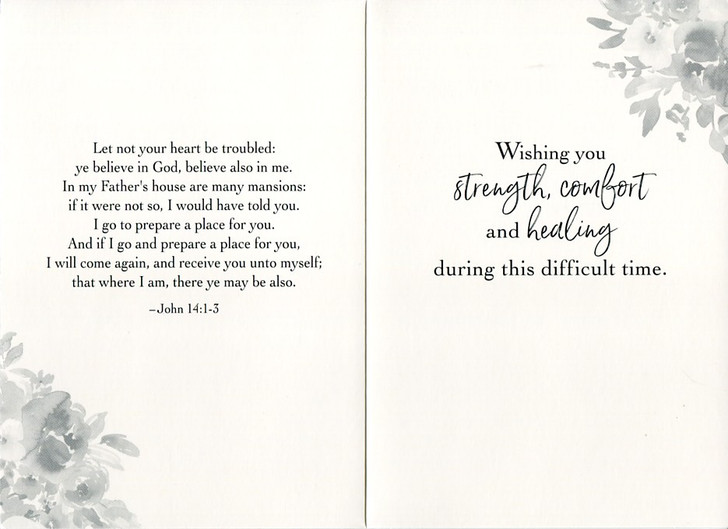 Let not your heart be troubled:
ye believe in God, believe also in me.
In my Father's house are many mansions:
if it were not so, I would have told you.
I go to prepare a place for you.
And if I go and prepare a place for you,
I will come again, and receive you unto myself;
that where I am, there ye may be also.
–John 14:1-3
Wishing you
strength, comfort
and healing
during this difficult time.